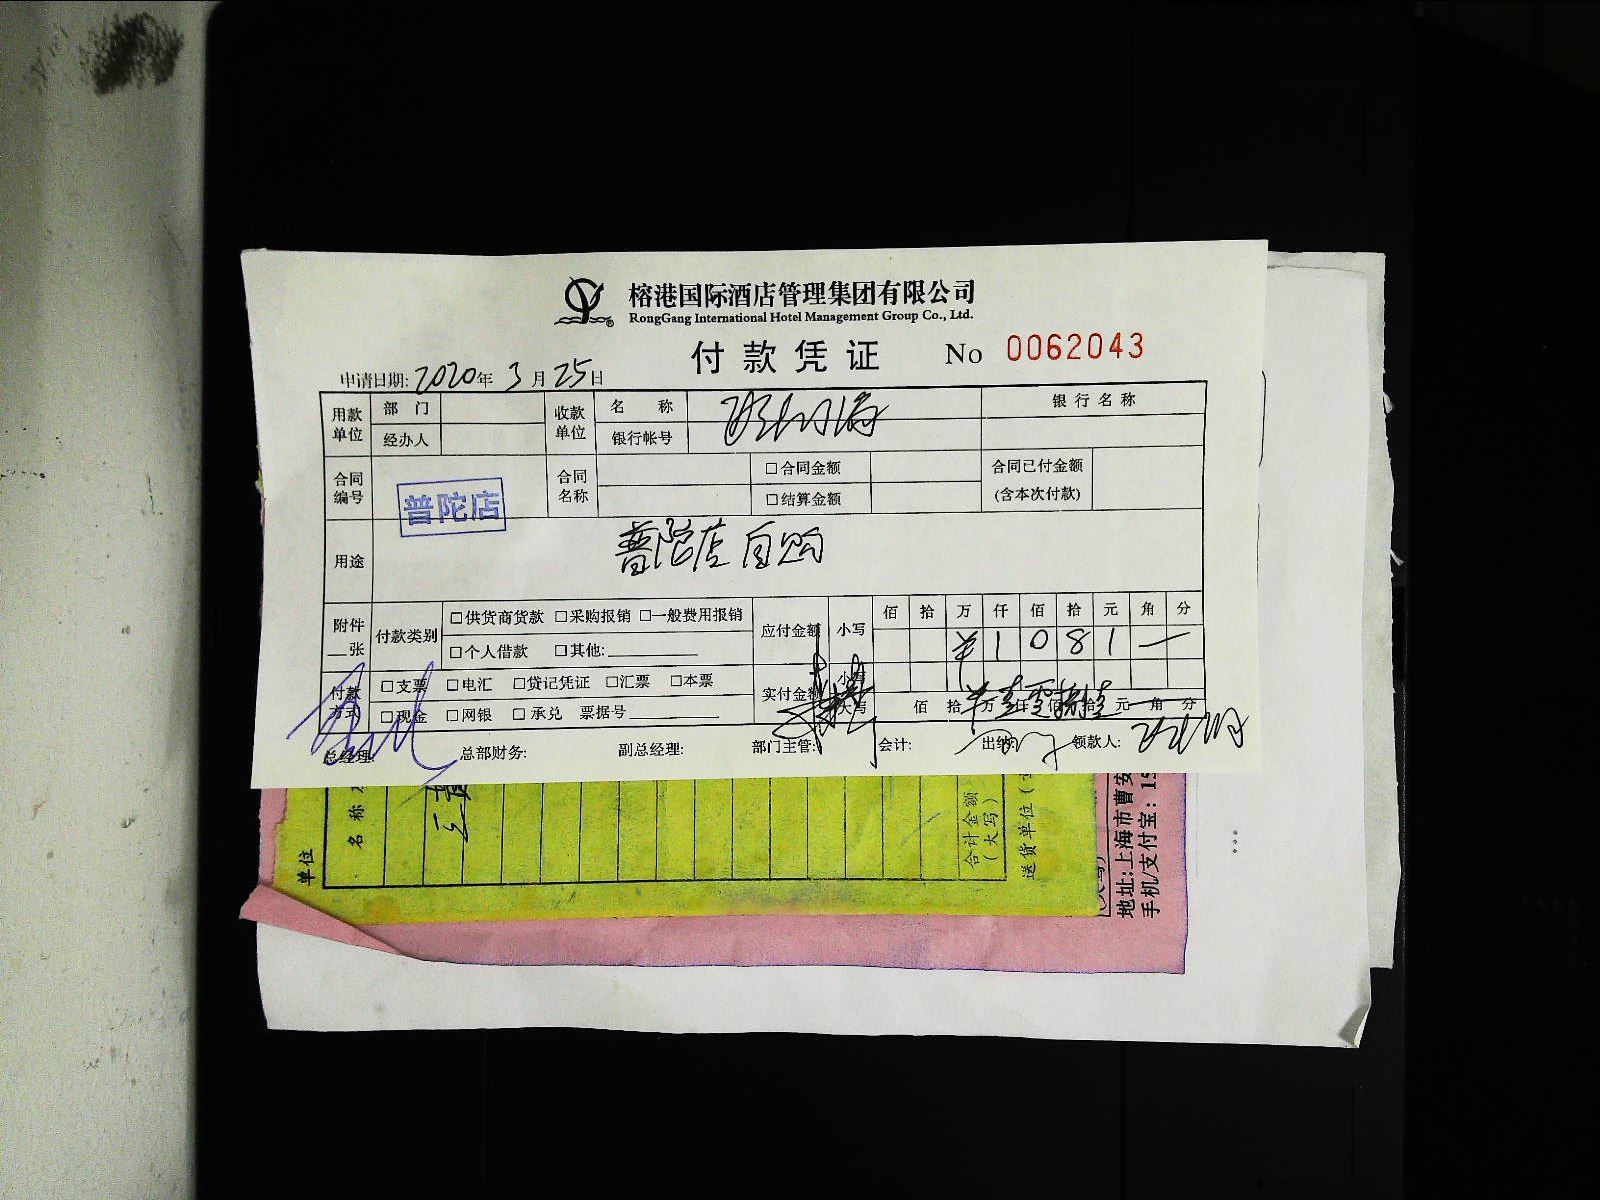 榕港国际酒店管理集团有限公司
RongGang International Hotel Management Group Co., Ltd.
付款凭证 No 0062043
申请日期: 2020年 3月 25日
用款单位 部门 收款单位 名称 银行名称
经办人 银行帐号
合同编号 普陀店 合同名称 □合同金额 合同已付金额
□结算金额 (含本次付款)
用途 普陀店自购
附件__张 付款类别 □供货商货款 □采购报销 □一般费用报销 应付金额 小写 佰 拾 万 仟 佰 拾 元 角 分
□个人借款 □其他:________ ¥ 1 0 8 1 —
付款方式 □支票 □电汇 □贷记凭证 □汇票 □本票 实付金额 小写
□现金 □网银 □承兑 票据号________ 大写 佰 拾 万 仟 佰 拾 元 角 分
总经理: 总部财务: 副总经理: 部门主管: 会计: 出纳: 领款人:
单位
名称
合计金额
(大写)
送货单位(
地址:上海市曹安
手机/支付宝: 15